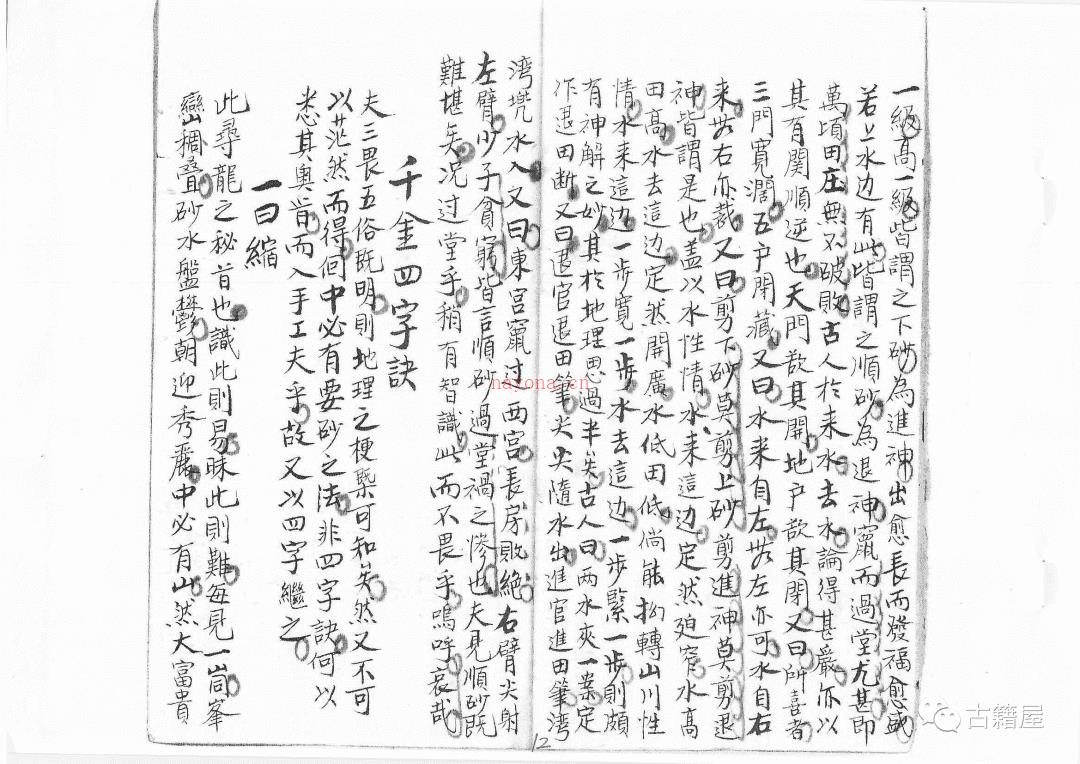 一級高一級皆謂之下砂為進神出愈長而發福愈盛
若上水边有此皆謂之順砂為退神竄而過堂尤甚即
萬頃田庄無不破敗古人於来水去水論得甚嚴亦以
其有関順逆也天門欲其開地户欲其閉又曰所喜者
三門寛濶五户閉藏又曰水来自左㫁左亦可水自右
来㫁右亦裁又曰剪下砂莫剪上砂剪進神莫剪退
神皆謂是也盖以水性情水来這边定然廹窄水髙
田髙水去這边定然開廣水低田低倘能拗轉山川性
情水来這边一步寛一步水去這边一步緊一步則頗
有神解之妙其於地理思過半矣古人曰两水夾一案定
作退田断又曰退官退田筆尖尖隨水出進官進田筆湾
湾兠水入又曰東宫竄过西宫長房敗絶右臂尖射
左臂少子貧窮皆言順砂過堂禍之慘也夫見順砂既
難堪矣况过堂乎稍有智識此而不畏乎嗚呼哀哉
千金四字訣
夫三畏五俗既明則地理之梗槩可知矣然又不可
以茫然而得何中必有要砂之法非四字訣何以
悉其奥旨而入手工夫乎故又以四字繼之
一曰縮
此尋龍之秘首也識此則易昧此則難每見一峝峯
巒稠叠砂水盤欝朝迎秀麗中必有山然大富貴
nayona.cn
12
古籍屋